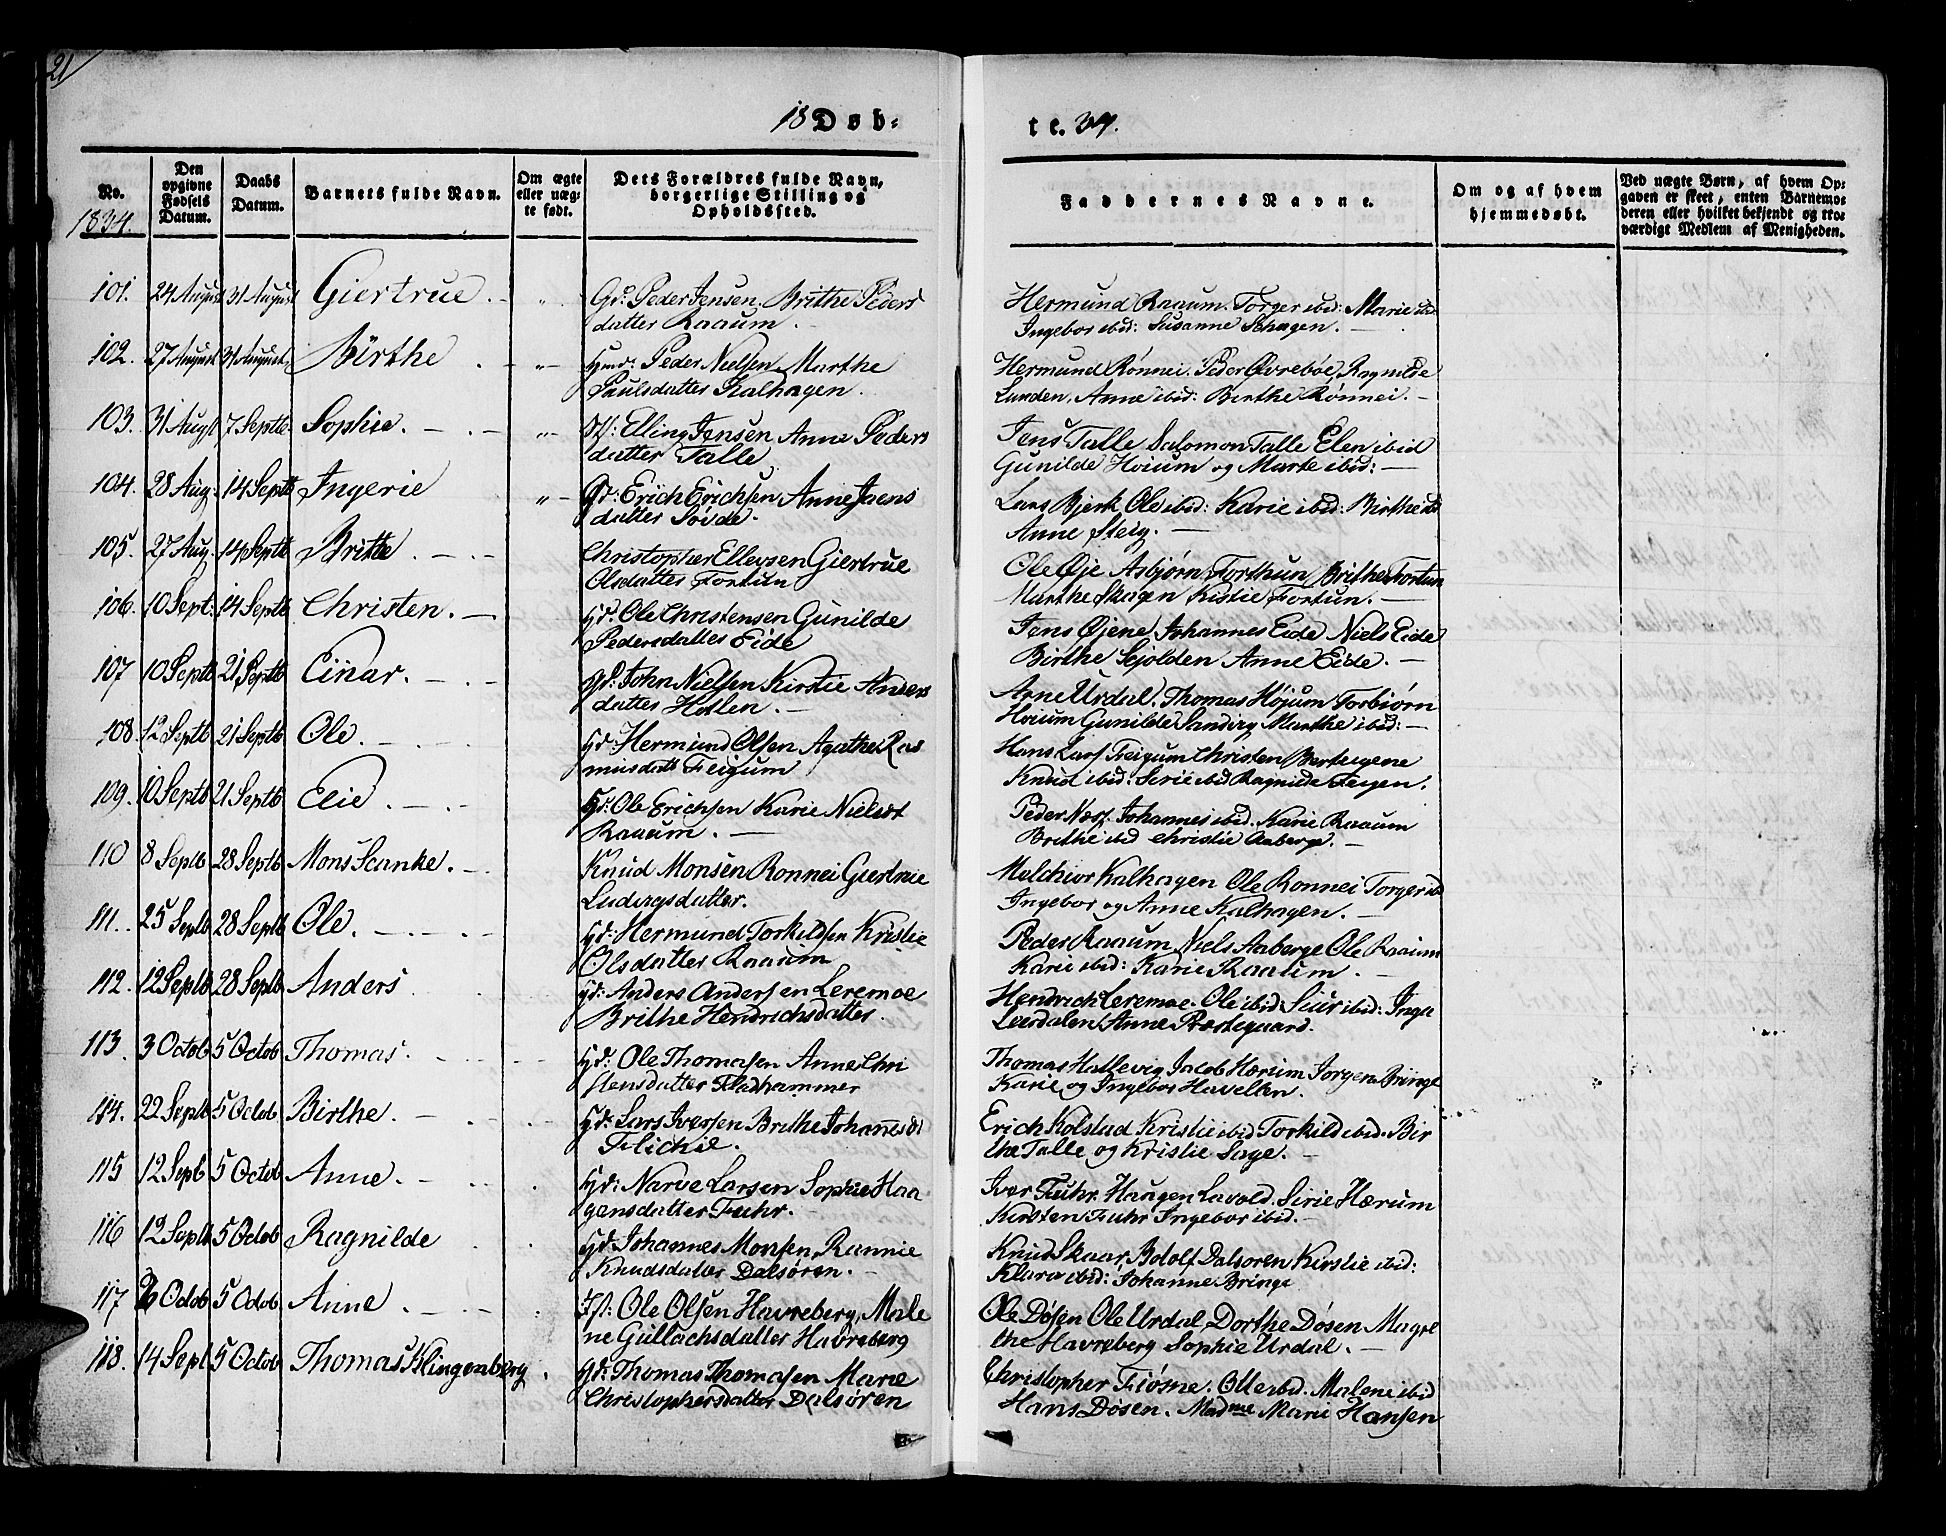 21
18 Døb-
te. 34.
No. Den opgivne Fødsels Datum. Daabs Datum. Barnets fulde Navn. Om ægte eller uægte født. Dets Forældres fulde Navn, borgerlige Stilling og Opholdssted. Faddernes Navne. Om og af hvem hjemmedøbt. Ved uægte Børn, af hvem Opgaven er skeet, enten Barnemoderen eller hvilket bekjendt og troværdigt Medlem af Menigheden.
1834.
101. 24 August 31 August Giertrue. „ Gd: Peder Jensen. Brithe Peders
datter Raaum.
Hermund Raaum. Torger ibid: Marie ibid
Ingebor ibid: Susanne Schagen.
102. 27 August 31 August Birthe „ Hmd: Peder Nielsen Marthe
Paulsdatter Kalhagen.
Hermund Rønnei. Peder Øvrebøe, Ragnilde
Lunden, Anne ibid: Berthe Rønnei.
103. 31 Augt 7 Septb. Sophie. „ Elling Jensen Anne Peders
datter Talle
Jens Talle Salomon Talle Elen ibid
Gunilde Hoium og Marte ibid:
104. 28 Aug: 14 Septb Ingerie „ Gd: Erich Erichsen Anne Jaens
datter Søvde.
Lars Bjerk Ole ibid: Karie ibid: Birthe ibd
Anne Steig.
105. 27 Aug. 14 Septb Britte. Christopher Ellevsen Giertrue
Olsdatter Fortun
Ole Øje Asbjørn Forthun Brithe Fortun
Marthe Skagen Kistie Fortun.
106. 10 Sept: 14 Septb Christen. Gd. Ole Christensen Gunilde
Pedersdatter Eide
Jens Øjene, Johannes Eide Niels Eide
Birthe Sejolden Anne Eide.
107 10 Septb 21 Septb Einar. Gd. John Nielsen Kirstie Anders
datter Hollen.
Arne Urdal. Thomas Højum Torbiørn
Hoium Gunilde Sandvig Marthe ibid:
108 12 Septb 21 Septb Ole. Gd: Hermund Olsen Agathe Ras
musdatt Feigum
Hans Lars Feigum Christen Berteigene
Knud ibid: Serie ibid Ragnilde Feigen.
109. 10 Septb 21 Septb Elie. Gd: Ole Erichsen Karie Nielsdt
Raaum.
Peder Næss. Johannes ibid. Karie Raaum
Brithe ibid Christie Aaberge.
110 8 Septb 28 Septb Mons Scanke. Knud Monsen Ronnei Giertrue
Ludvigsdatter.
Melchior Kalhagen Ole Ronnei Torger ibd
Ingebor og Anne Kalhagen.
111. 25 Septb 28 Septb Ole. Gd: Hermund Torkildsen Kristie
Olsdatter Raaum
Peder Raaum Niels Aaberge Ole Raaum
Karie ibid: Karie Raaum.
112. 12 Septb 28 Septb Anders Gd: Anders Andersen Leremoe
Brithe Hendrichsdatter.
Hendrich Leremoe. Ole ibid: Siur ibid: Inga
Leerdalen Anne Præstegaard.
113. 3 Octob 5 Octob Thomas. Gd: Ole Thomasen Anne Chri
stensdatter Fladhammer
Thomas Hallevig Jacob Hærum Jorgen Bringe
Karie og Ingebor Havellen.
114. 22 Septb 5 Octob Birthe. Gd: Lars Iversen Brithe Johanesdt
Flichie.
Erich Kolstad Kristie ibid Torkild ibid. Bir
the Talle og Kristie Sage.
115 12 Septb 5 Octob Anne. Gd: Narve Larsen Sophie Haa
gensdatter Fuhr.
Iver Fuhr. Haagen Lavold. Sirie Hærum
Kirsten Fuhr Ingebor ibid.
116 12 Septb 5 Octob Ragnilde Gd. Johannes Monsen Rannie
Knudsdatter Dalsøren.
Knud Skaar, Bolof Dalsoren Kirstie ibid:
Klara ibid: Johanne Bringe
117 Octob 5 Octob Anne. Ole Olsen Havreberg, Male
ne Gullachsdatter Havreberg
Ole Døsen Ole Urdal Dorthe Døsen Magre
the Havreberg Sophie Urdal.
118. 14 Sept 5 Octob Thomas Klingenberg. Gd: Thomas Thomasen Marie
Christophersdatter Dalsøren
Christopher Fiøsne. Olle ibid. Malene ibid
Hans Døsen. Madme Marie Hansen